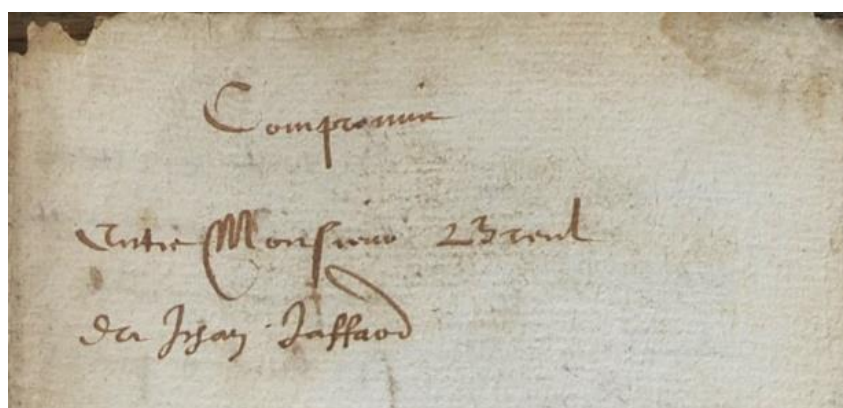 Compromis
Entre Monsieur Breul
Jehan Jaffaod